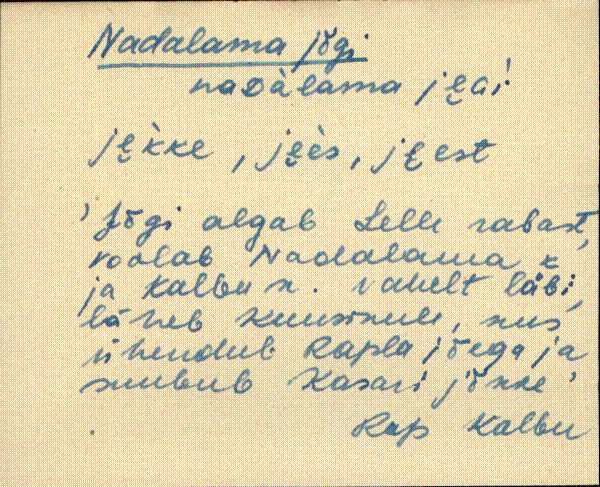 Nadalama jõgi
naᴅàlama je̮ɢi
je̮kke, je̮ès, je̮est
'Jõgi algab Lelle rabast,
voolab Nadalama k
ja Kalbu k. vahelt läbi,
läheb Kuusikule, kus
ühendub Rapla jõega ja
suubub Kasari jõkke'
Rap Kalbu